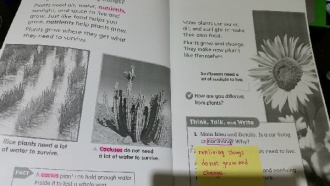 Plants need air, water, nutrients,
sunlight, and space to live and
grow. Just like food helps you
grow, nutrients help plants grow.
Plants grow where they get what
they need to survive.
Rice plants need a lot
of water to survive.
Cactuses do not need
a lot of water to survive.
FACT
A cactus plant can hold enough water
inside it to last a whole year.
air, and sunlight to make
their own food.
Plants grow and change.
They make new plants
like themselves.
Sunflowers need a
lot of sunlight to live.
How are you different
from plants?
Think, Talk, and Write
1. Main Idea and Details. Is a car living
or nonliving? Why?
nonliving things
do not grow and
change